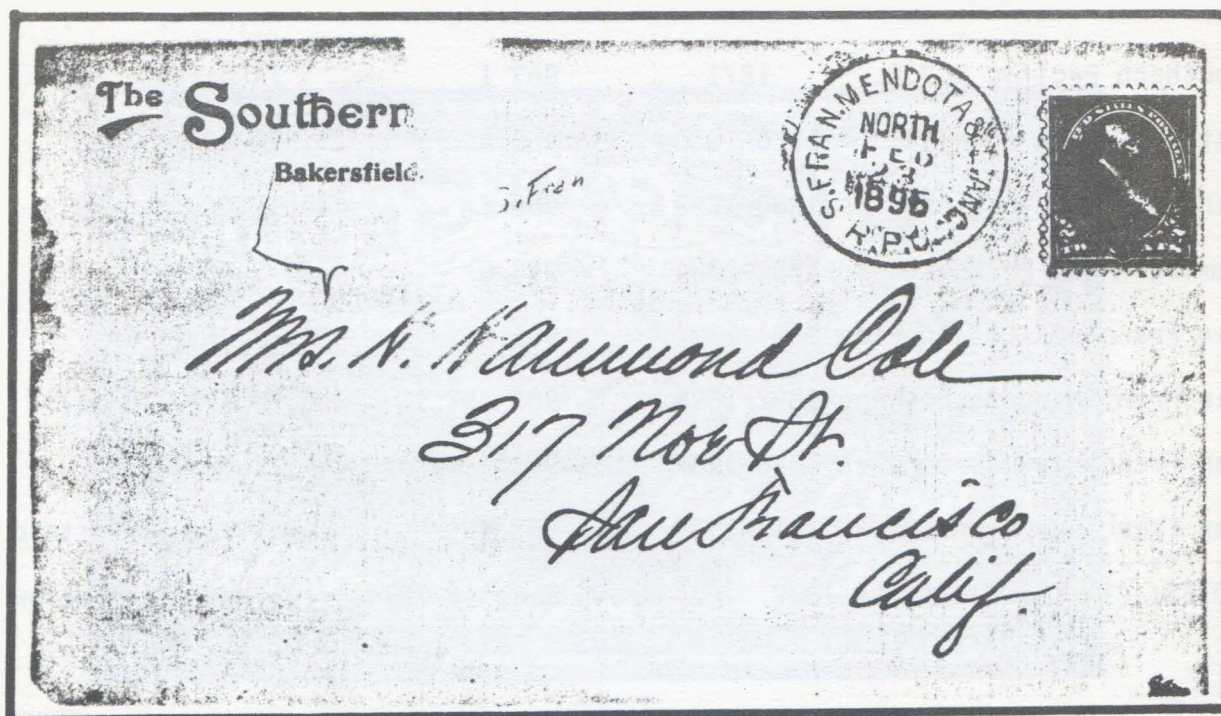 The Southern
Bakersfield.
S. Fran
S. FRAN. MENDOTA & L. ANG.
NORTH
FEB
23
1896
R.P.O.
U.S. STATES POSTAGE
Mrs. N. Hammond Cole
317 Noe St.
San Francisco
Calif.